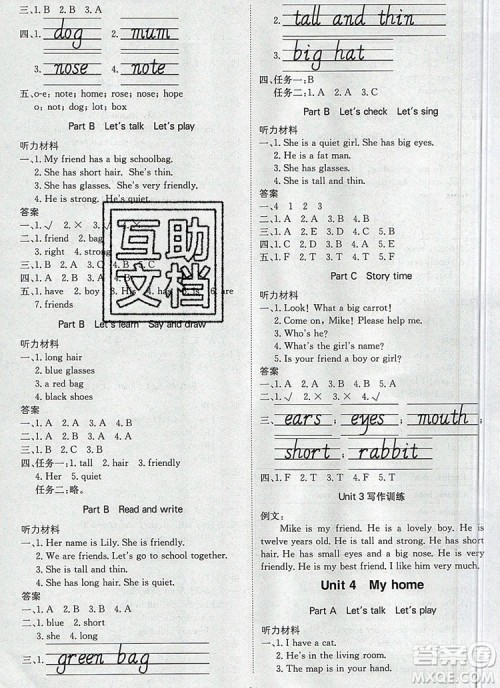 三、1. B 2. A 3. B
四、1. dog 2. mum
3. nose 4. note
五、o-e: note; home; rose; nose; hope
o: not; dog; lot; box
Part B Let's talk Let's play
听力材料
一、1. My friend has a big schoolbag.
2. She has short hair. She's thin.
3. She has glasses. She's friendly.
4. He is strong. He's very friendly.
5. She is quiet.
答案
一、1. √ 2. × 3.
二、1. friend 2. bag
3. right 4. strong
三、1. A 2. B 3. A
四、1. B 2. A 3. A
五、1. have 2. boy 3. His 4. has 5. is 6. are
7. friends
Part B Let's learn Say and draw
听力材料
一、1. long hair
2. blue glasses
3. a red bag
4. black shoes
答案
一、1. A 2. B 3. B 4. B
二、3 1 2 4
三、1. B 2. B 3. A
四、任务一:1. tall 2. hair 3. friendly
4. Her 5. quiet
任务二:略。
Part B Read and write
听力材料
一、1. Her name is Lily. She's my friend.
2. We are friends. Let's go to school together.
3. She has glasses. Her hair is long.
4. She has long hair. She's friendly.
答案
一、1. A 2. B 3. A 4. B
二、1. B 2. A 3. B 4. A
三、1. green bag
2. tall and thin
3. big hat
四、任务一:B
任务二:1. A 2. A 3. C
Part B Let's check Let's sing
听力材料
一、1. She is a quiet girl. She has big eyes.
2. He is a fat man.
3. She has glasses.
4. She is tall and thin.
答案
一、4 1 2 3
二、1. A 2. B 3. A
三、1. B 2. A 3. B 4. B
四、1. F 2. T 3. F 4. T
Part C Story time
听力材料
一、1. Look! What a big carrot!
2. Come, Mike! Please help me!
3. Who's he?
4. What's the girl's name?
5. Is your friend a boy or girl?
答案
一、1. A 2. A 3. B 4. A 5. B
二、1. √ 2. × 3. × 4. √
三、ears eyes mouth
short rabbit
四、1. F 2. F 3. T 4. T 5. F
Unit 3 写作训练
例文:
Mike is my friend. He is a lovely boy. He is
twelve years old. He is tall and strong. He has short
hair. He has small eyes and a big nose. He is very
friendly. He is my best friend. I like him very much.
Unit 4 My home
Part A Let's talk Let's play
听力材料
一、1. I have a cat.
2. He's in the living room.
3. The map is in your hand.
互助
文档
答案圈
MXQE.COM